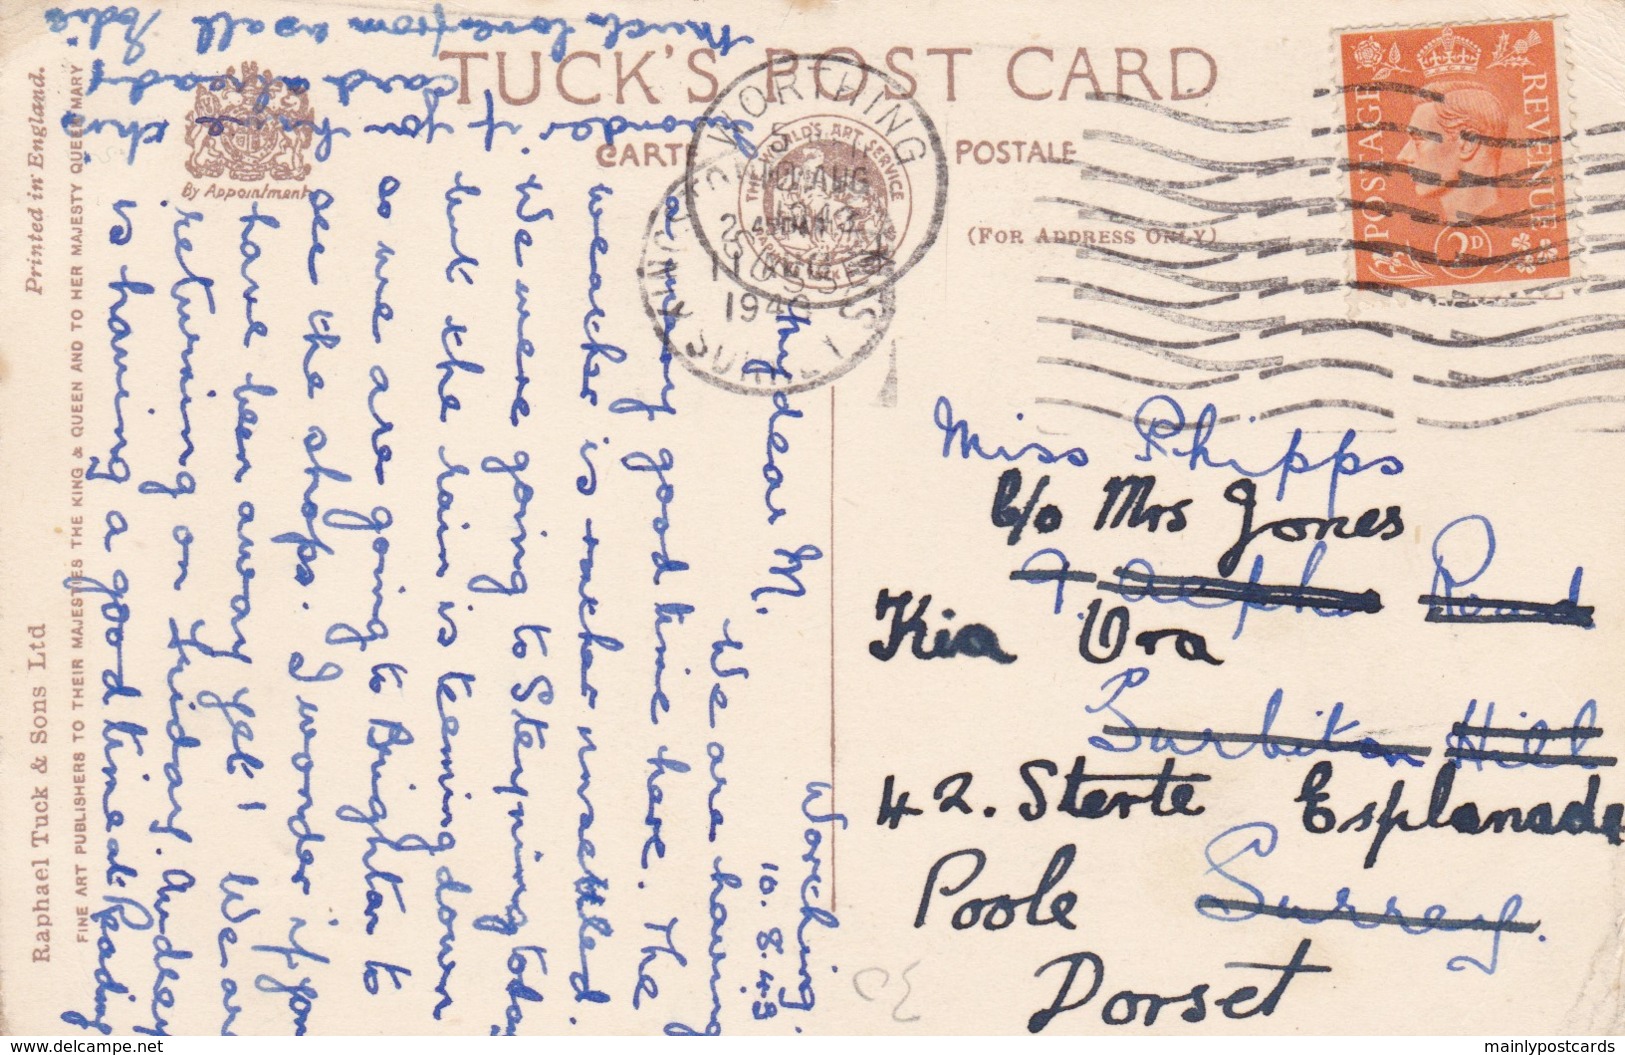 TUCK'S POST CARD
CARTE POSTALE
(FOR ADDRESS ONLY)
THE WORLD'S ART SERVICE
By Appointment
POSTAGE REVENUE
2D
WORTHING
AUG
11 AUG
1949
SURREY
Printed in England.
Raphael Tuck & Sons Ltd
FINE ART PUBLISHERS TO THEIR MAJESTIES THE KING & QUEEN AND TO HER MAJESTY QUEEN MARY
Worthing.
10.8.49
My dear M.
We are having
a very good time here. The
weather is rather unsettled.
We were going to Steyning today
but the rain is teeming down
so we are going to Brighton to
see the shops. I wonder if you
have been away yet! We are
returning on Friday. Audrey
is having a good time at Reading
I wonder if you have this
card already
Much love from us all
Miss Phipps
C/o Mrs Jones
7. Alpha Road
Kia Ora
Surbiton Hill
42. Sterte Esplanade
Surrey.
Poole
Dorset
mainlypostcards
delcampe.net